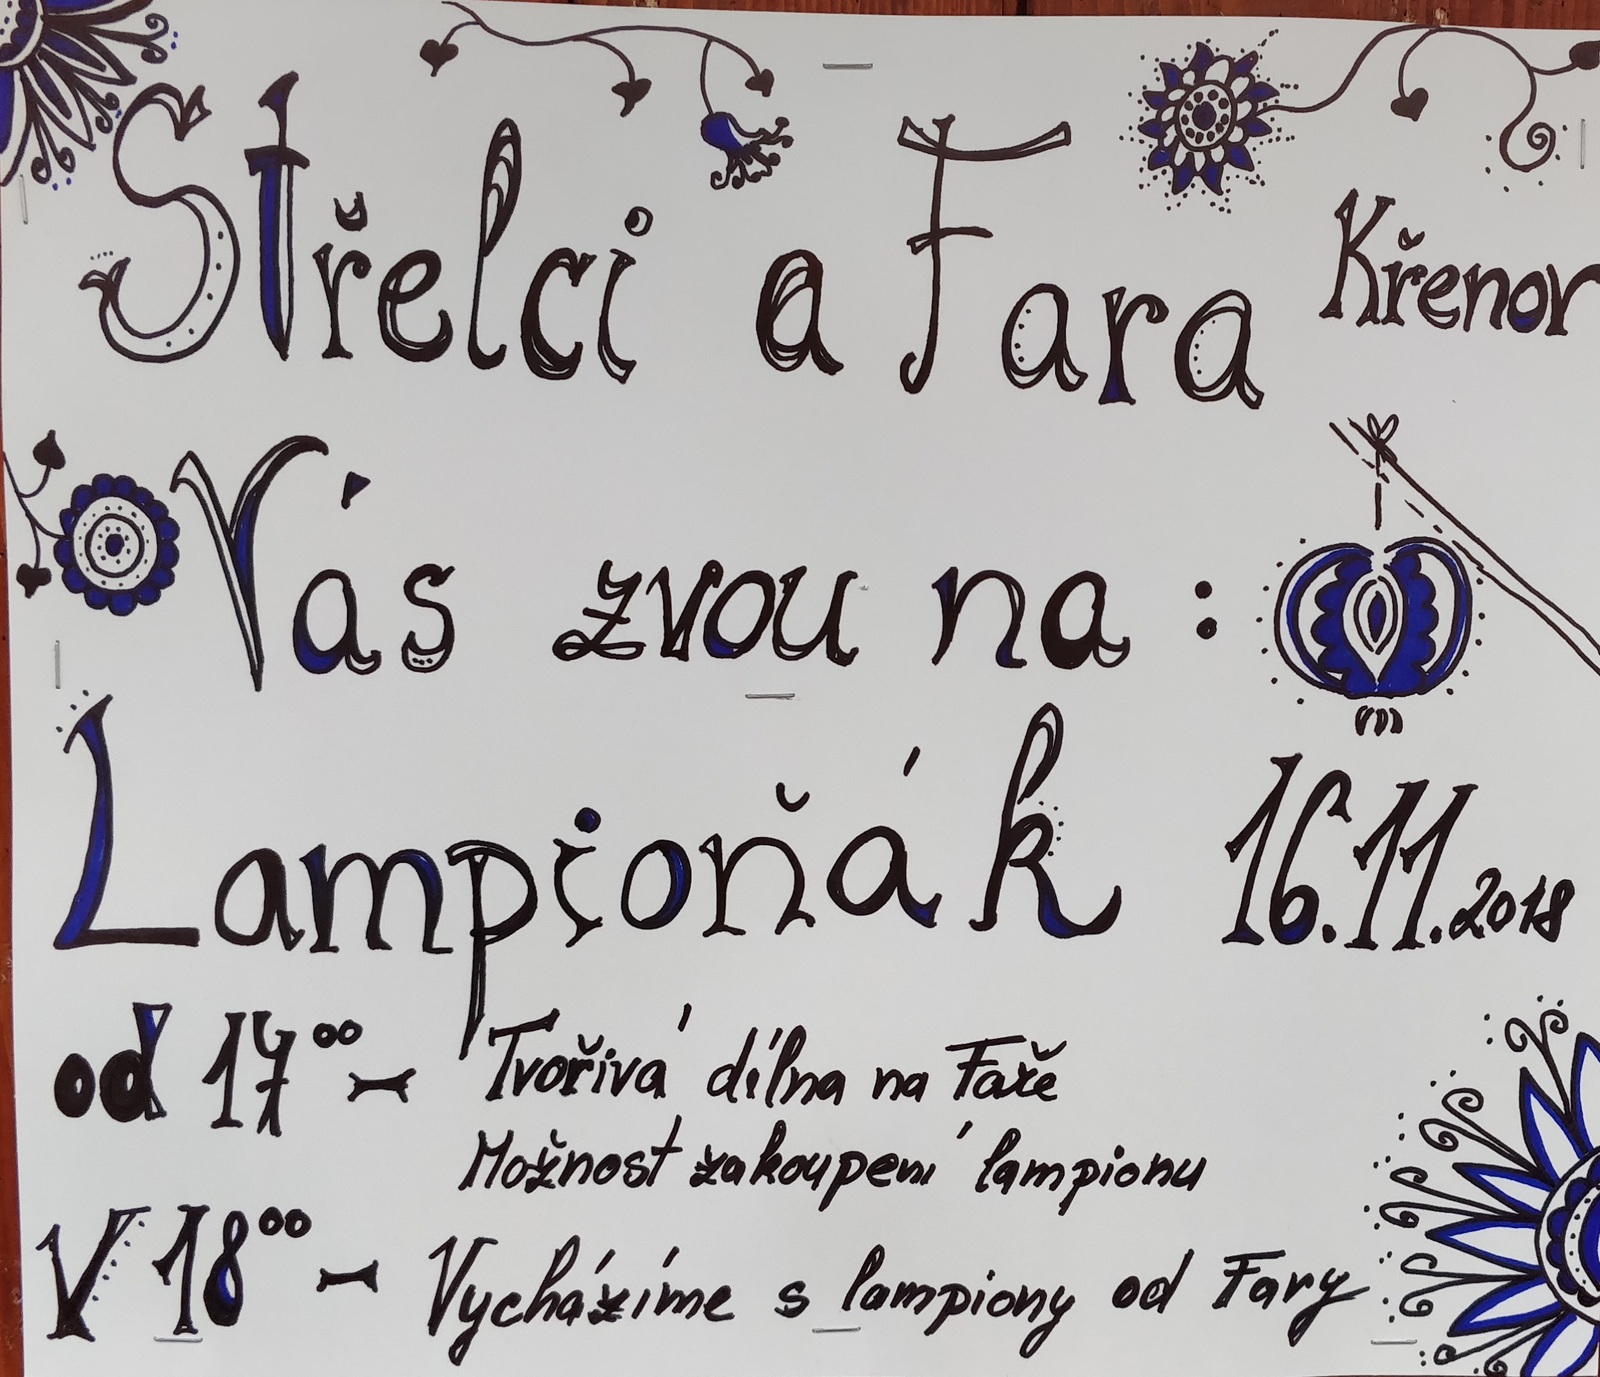 Střelci a Fara Křenov
Vás zvou na :
Lampioňák 16.11.2018
od 17⁰⁰ - Tvořivá dílna na Faře
Možnost zakoupení lampionu
V 18⁰⁰ - Vycházíme s lampiony od Fary